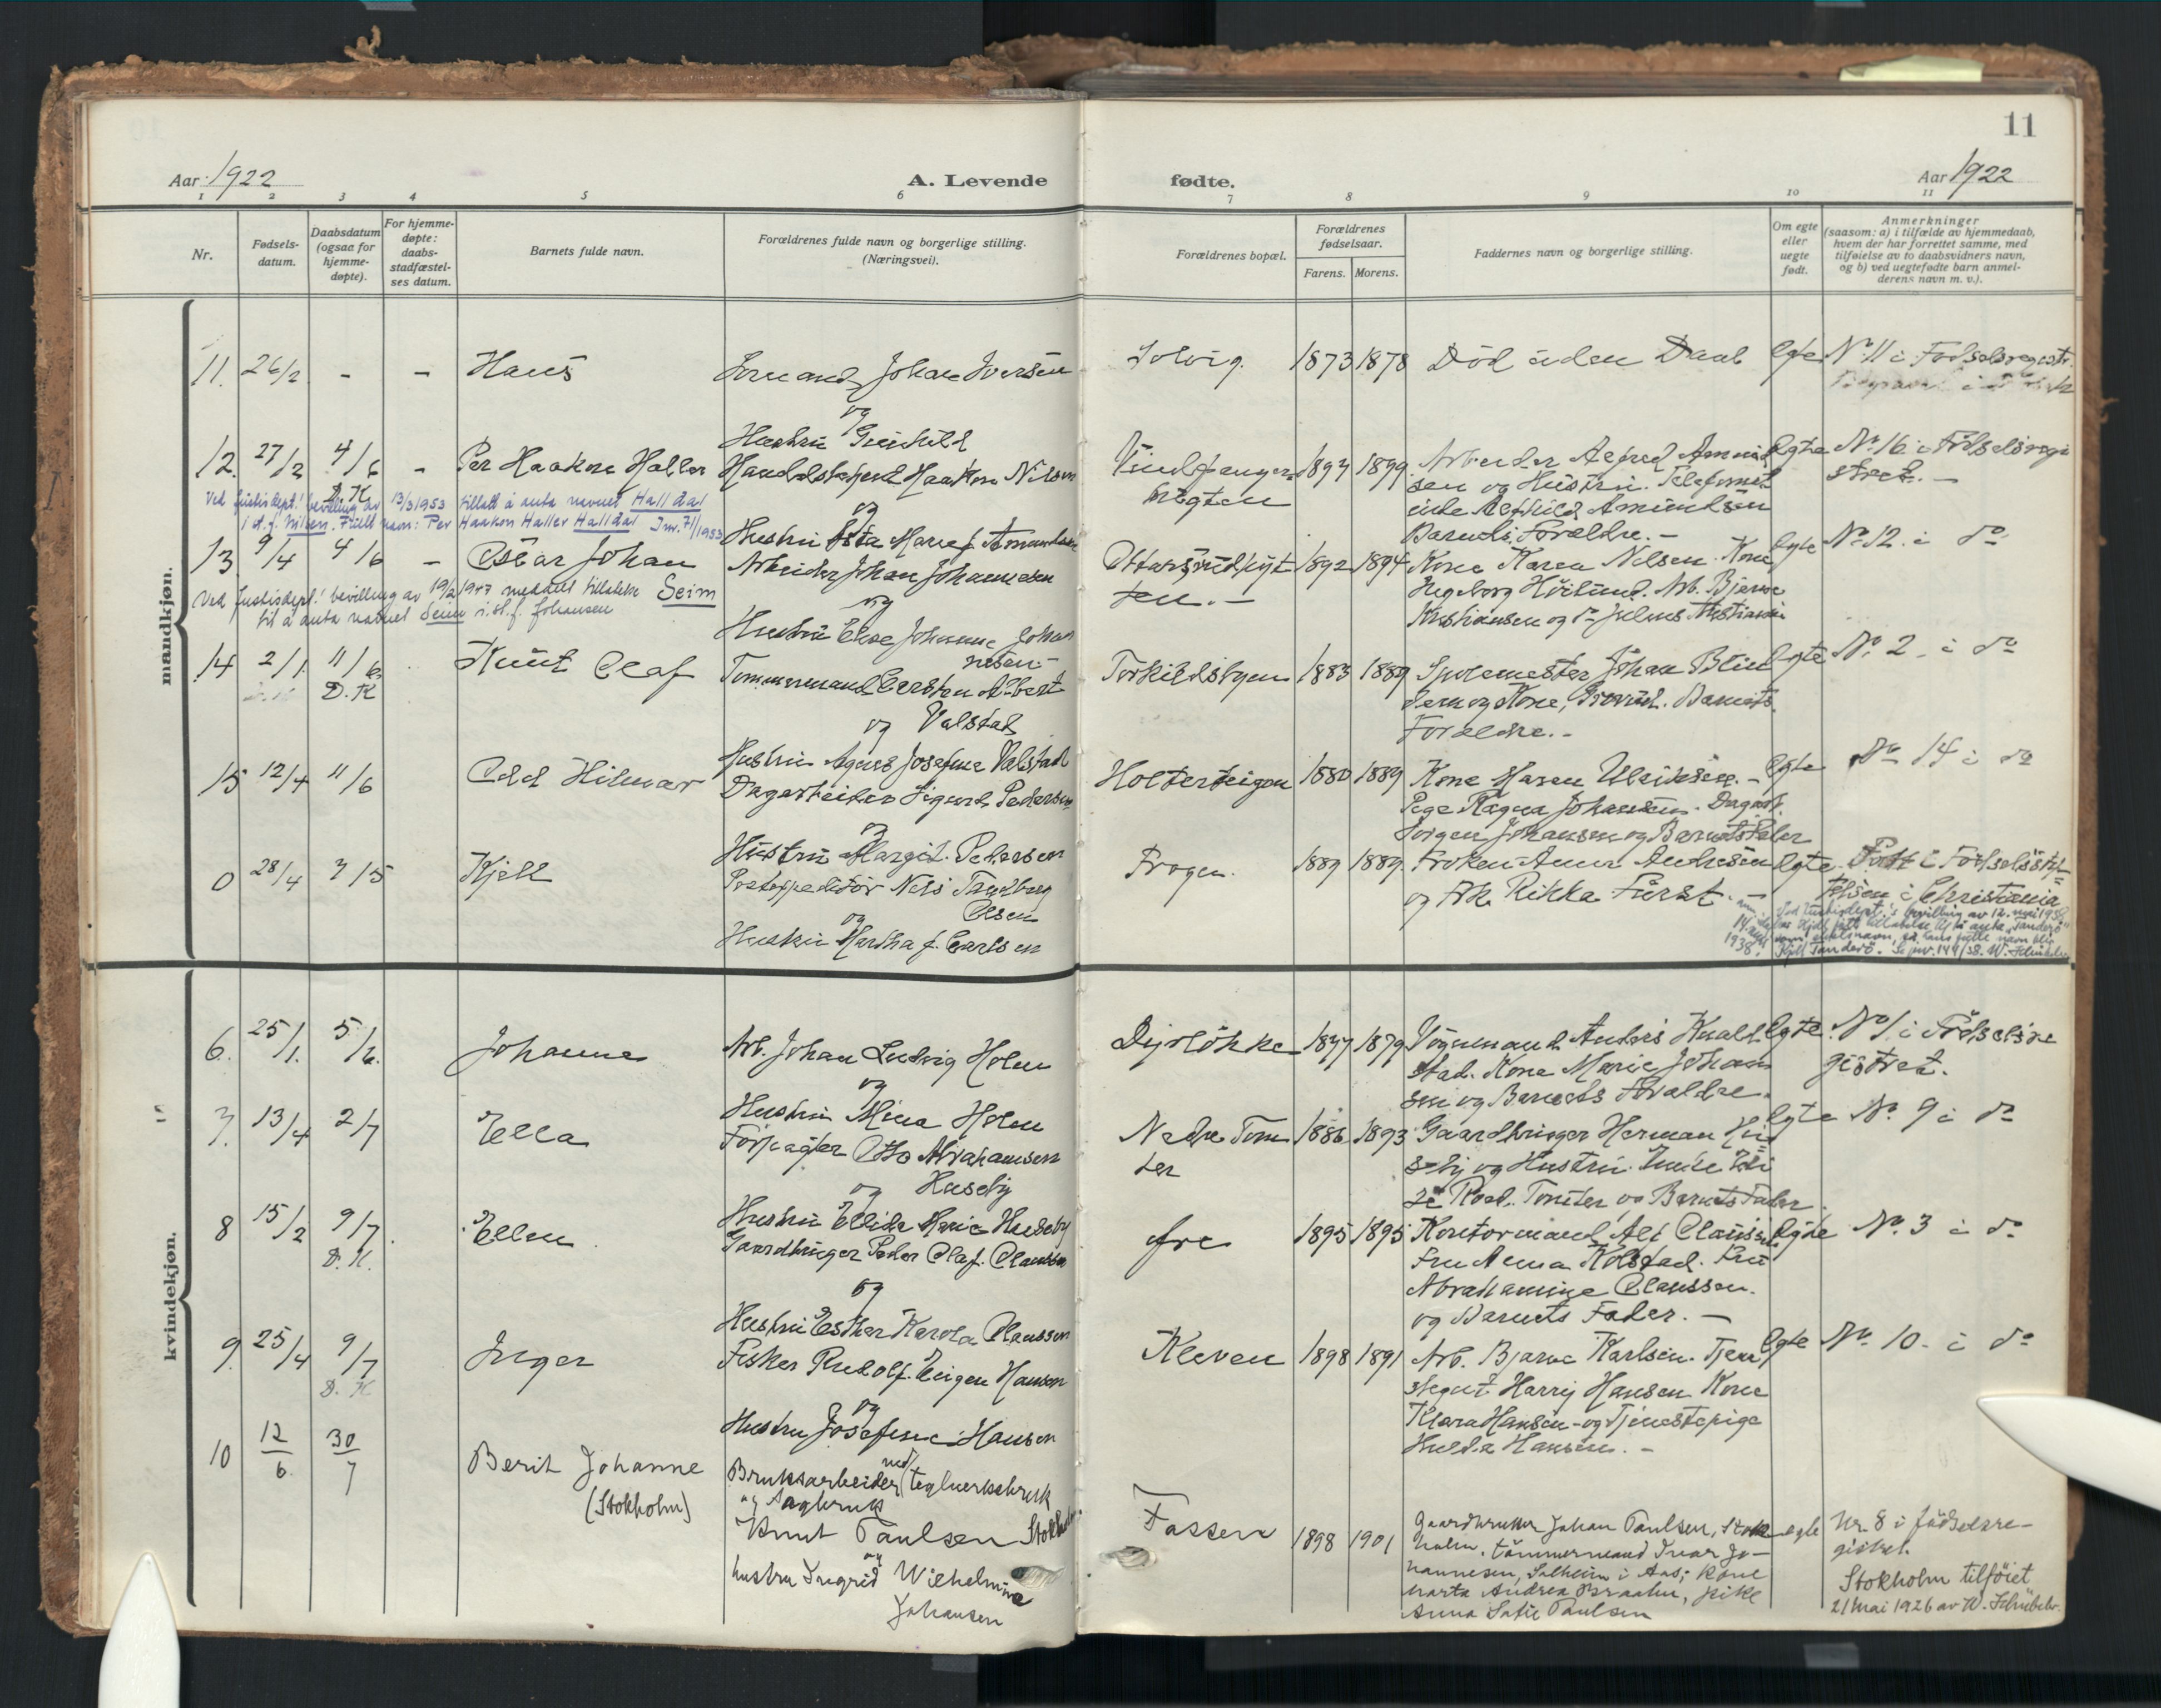 11
Aar 1922
A. Levende
fødte.
Aar 1922
1 2 3 4 5 6 7 8 9 10 11
Nr.
Fødsels-
datum.
Daabsdatum
(ogsaa for
hjemme-
døpte).
For hjemme-
døpte:
daabs-
stadfæstel-
ses datum.
Barnets fulde navn.
Forældrenes fulde navn og borgerlige stilling.
(Næringsvei).
Forældrenes bopæl.
Forældrenes
fødselsaar.
Farens. Morens.
Faddernes navn og borgerlige stilling.
Om egte
eller
uegte
født.
Anmerkninger
(saasom: a) i tilfælde av hjemmedaab,
hvem der har forrettet samme, med
tilføielse av to daabsvidners navn,
og b) ved uegtefødte barn anmel-
derens navn m. v.).
mandkjøn.
11. 26/2 - - Hans
Johan Iversen
og
Hustru Gunhild
Solvig. 1873 1878
Død uden Daab
Egte
No 11 i Fødselsregistr.
12. 27/2 4/6 - Per Haakon Haller
D. K.
Haakon Nilsen
og
Hustru Asta
1897 1899
Arbeider Alfred Amund
sen og Hustru. Telefonist
inde Amundsen
Barnets Forældre. -
Egte
No 16 i Fødselsregi
stret. -
Ved justisdept.' bevilling av 13/3 1953 tillatt å anta navnet Halldal
i st. f. Nilsen. Fullt navn: Per Haakon Haller Halldal Jnr. 71/1953
13 9/4 4/6 - Oskar Johan
Arbeider Johan Johannesen
og
Hustru Else Johanne Johan
nesen -
1892 1894
Kone Karen Nilsen. Kone
Ingeborg Arb. Bjarne
Kristiansen og do Julius Kristiansen
Egte
No 12. i do
Ved Justisdept.' bevilling av 19/2 1947 meddelt tillatelse Seim
til å anta navnet Seim i st. f. Johansen
14 2/1. 11/6 Knut Olaf
D. K
Tømmermand Carsten Albert
og Valstad
Hustru Agnes Josefine Valstad
Torkildsbyen 1883 1889
Johan Blin
dern og Kone, Barnets
Forældre. -
Egte
No 2. i do
15 12/4 11/6 Odd Hilmar
Dagarbeider Sigurd Pedersen
og
Hustru Margit Pedersen
Holterteigen 1880 1889
Kone Maren Ulriksen. -
Pige Ragna Johansen. Dagarb.
Jørgen Johansen og Barnets Fader
Egte
No 14 i do
0 28/4 7/5 Kjell
Postexpeditør Nils Tandberg
Olsen
og
Hustru Martha f. Carlsen
Frogn. 1889 1889.
Frøken Anna Andresen
og Frk. Rikka Fürst. -
Egte.
Født i Fødselsstif-
telsen i Christiania
Ved Justisdept.'s bevilling av 12. mai 1938
Kjell Tanderö. Se jnr. 144/38. W. Schnitler
kvindekjøn.
6. 25/1. 5/6. Johanne
Arb. Johan Ludvig Holm
og
Hustru Mina Holm
Dyrløkke 1877 1879
Vognmand Anders Knald
stad. Kone Marie Johan
sen og Barnets Forældre.
Egte.
No 1 i Fødselsre
gistret.
7. 13/4 2/7 Ella
Forpagter Otto Abrahamsen
og Huseby
Hustru Ellida Marie Huseby
Nedre Tom
ter
1886 1893
Gaardbruger Herman Hu
seby og Hustru.
Tomter og Barnets Fader.
Egte
No. 9 i do
8 15/2 9/7. Ellen
D. K.
Gaardbruger Peder Olaf. Claussen
og
Hustru Esther Karola Claussen
Øvre 1895 1895
Kontormand Alf Claussen
Fru Anna Kolstad. Fru
Abrahamine Claussen.
og Barnets Fader. -
Egte
No. 3 i do
9. 25/4 9/7 Inger
D. K
Fisker Rudolf Eugen Hansen
og
Hustru Josefine Hansen
Kleven 1898 1891
Arb. Bjarne Karlsen. Tjene
stegut Harry Hansen Kone
Klara Hansen - og Tjenestepige
Hulda Hansen. -
Egte
No. 10. i do
10 12/6 30/7 Berit Johanne
(Stokholm)
Bruksarbeider ved (teglverksbruk
og sagbruk
Knut Paulsen Stokholm
og
hustru Ingrid Wilhelmine
Johansen
Fosseen 1898 1901
Gaardbruker Johan Paulsen, Stok
holm, tømmermand Ivar Jo-
hannesen, Solheim i Aas; kone
Marta Andrea Braaten, pike
Anna Sofie Paulsen
egte
Nr. 8 i fødselsre-
gistret.
Stokholm tilføiet
21 mai 1926 av W. Schnitler.